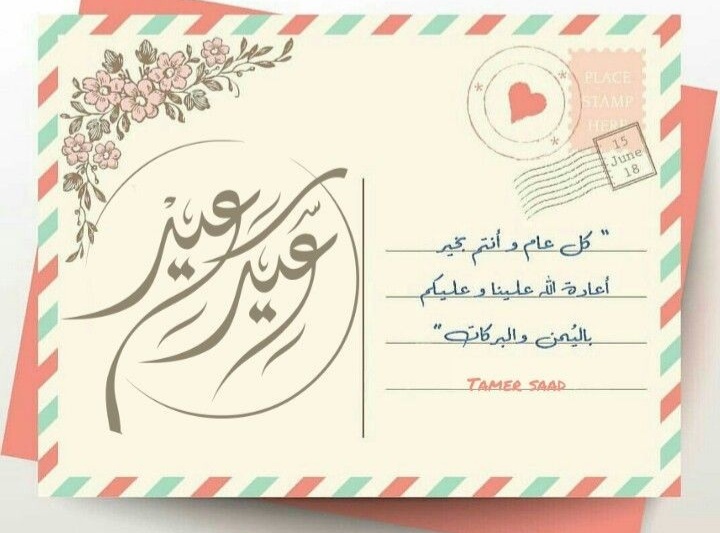 PLACE
STAMP
HERE
15
June
18
عيد سعيد
" كل عام و أنتم بخير
أعادة الله علينا و عليكم
باليُمن والبركات "
TAMER SAAD